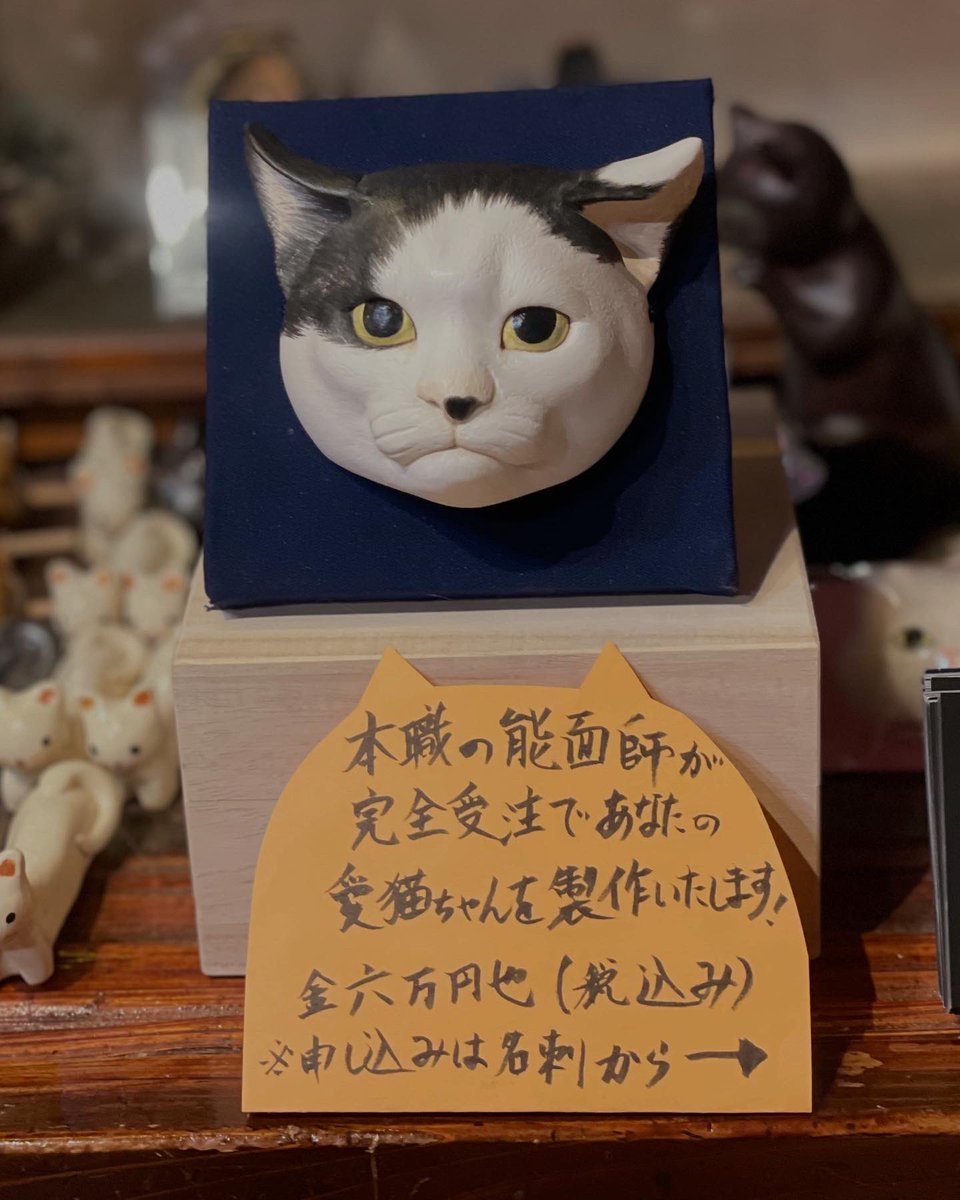 本職の能面師が
完全受注であなたの
愛猫ちゃんを製作いたします!
金六万円也(税込み)
※申し込みは名刺から→